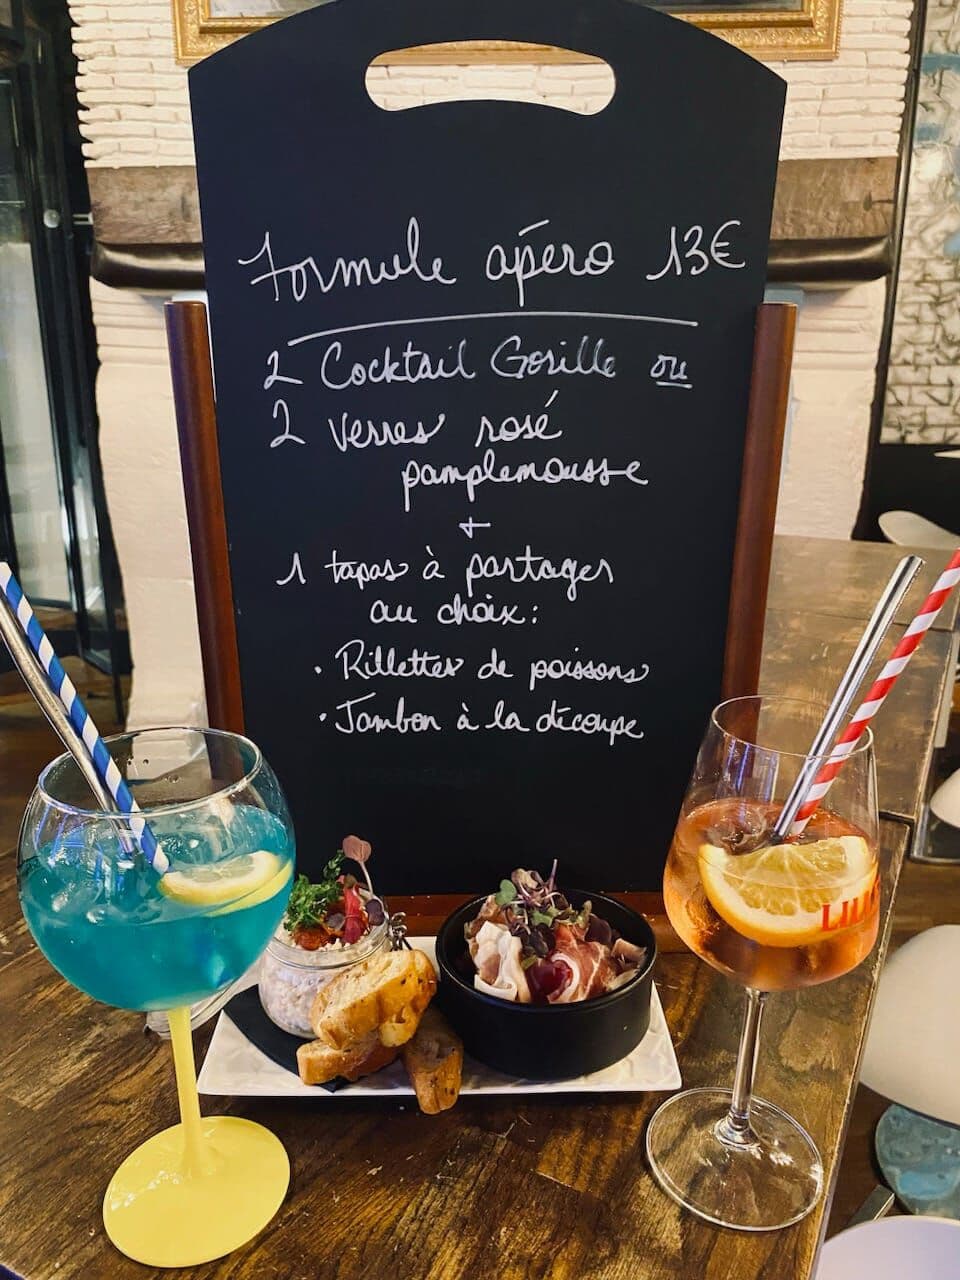 Formule apéro 13€
2 Cocktail Gorille ou
2 verres rosé
pamplemousse
+
1 tapas à partager
au choix:
. Rillettes de poissons
. Jambon à la découpe